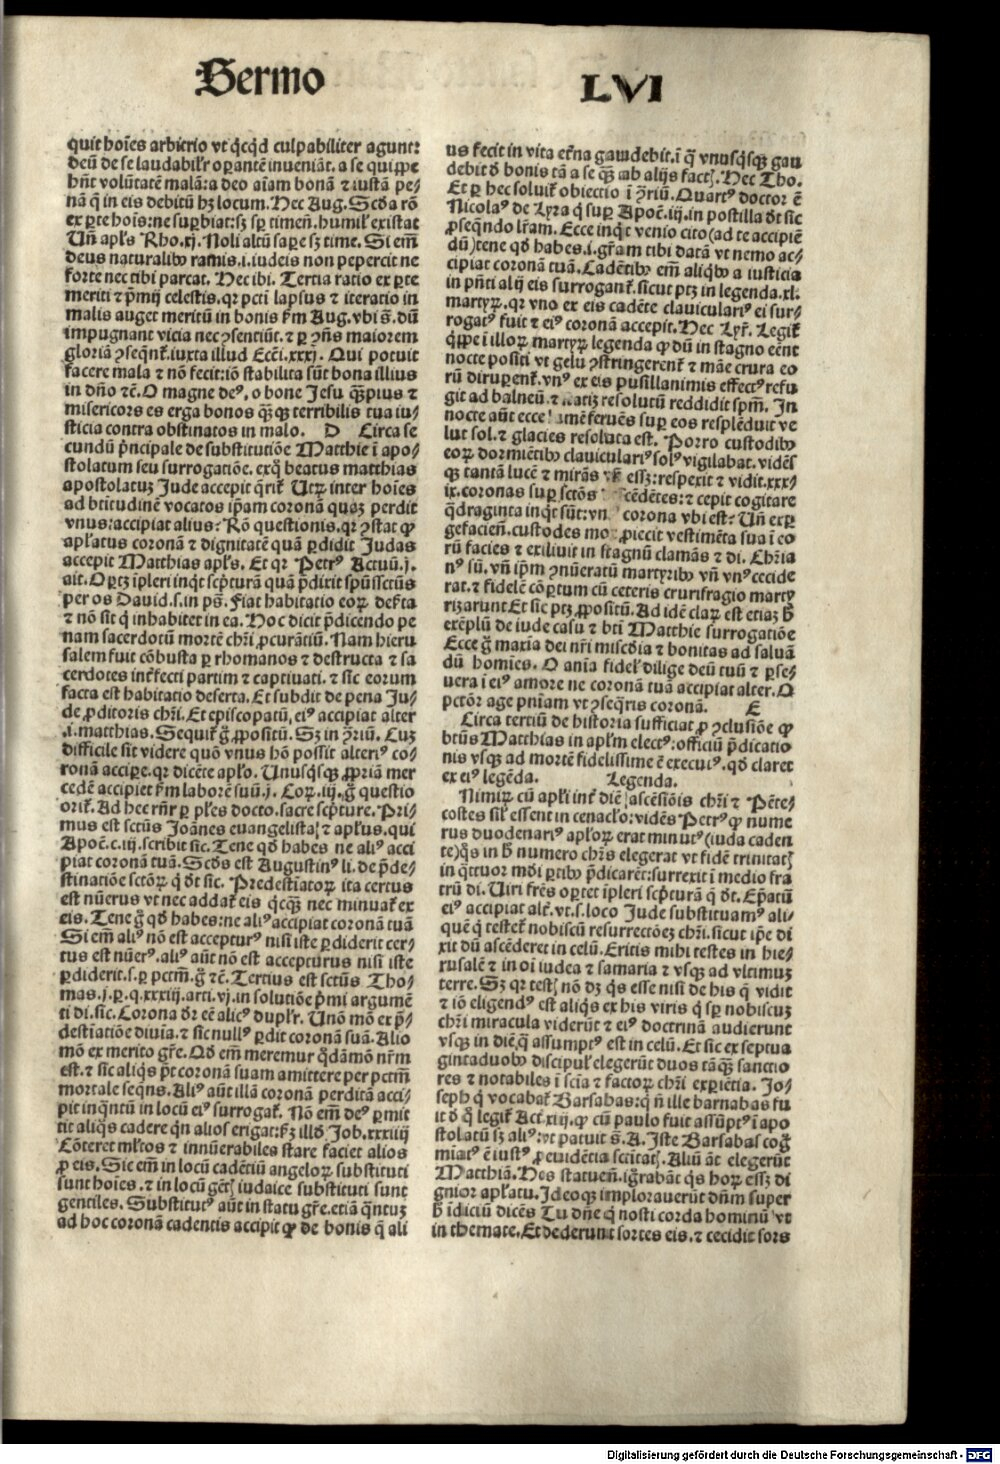 Sermo LVI
quit hoīes arbitrio vt q̇cq̇d culpabiliter agunt:
deū de se laudabilr̄ oꝑantē inveniāt. a se quippe
hn̄t volūtatē malā: a deo aūtē bonā ⁊ iustā pe⸗
nā q̄ in eis debitū hꝫ locum. Hec Aug. Scd̓a rō
ex ꝑte hoīs: ne suꝑbiat: sꝫ sꝑ timen̄. humil̓ existat
Un̄ apl̓s Rho. xj. Noli altū saꝑe sꝫ time. Si em̄
deus naturalibꝰ ramis .i. iudeis non pepercit ne
forte nec tibi parcat. Hec ibi. Tertia ratio ex ꝑte
meriti ⁊ p̄mij celestis. qꝛ pctī lapsus ⁊ iteratio in
malis auget meritū in bonis ẜm Aug. vbi s̄. dū
impugnant vicia nec ꝯsentiūt. ⁊ ꝑ ꝯn̄s maiorem
gloriā ꝯseqn̄t̄. iuxta illud Ecc̄i. xxxj. Qui potuit
facere mala ⁊ nō fecit: iō stabilita sūt bona illius
in dn̄o ⁊c̄. O magne deꝰ, o bone Jesu qꝫ̄ pius ⁊
misericors es erga bonos qꝫ̄ qꝫ terribilis tua iu⸗
sticia contra obstinatos in malo. D Circa se
cundū pn̄cipale de substitutiōe Matthie ī apo⸗
stolatum seu surrogatiōe. ex q̄ beatus matthias
apostolatuꝫ Jude accepit q̄rit̄ Utꝝ inter hoīes
ad btītudinē vocatos ip̄am coronā quaꝫ perdit
vnus: accipiat alius? Rō questionis. qꝛ ꝯstat ꝙ
apl̓atus coronā ⁊ dignitatē quā ꝑdidit Judas
accepit Matthias apl̓s. Et qꝛ Petrꝰ Actuū. j.
ait. Oꝑtꝫ īpleri inq̇t scp̄turā quā p̄dixit spūssctūs
per os David .s. in ps̄. Fiat habitatio eoꝝ deẜta
⁊ nō sit q̇ inhabitet in ea. Hoc dicit p̄dicendo pe
nam sacerdotū mortē chr̄i ꝓcurātiū. Nam hieru
salem fuit cōbusta ꝑ rhomanos ⁊ destructa ⁊ sa
cerdotes int̄fecti partim ⁊ captivati. ⁊ sic eorum
facta est habitatio deserta. Et subdit de pena Ju⸗
de ꝓditoris chr̄i. Et episcopatū, eiꝰ accipiat alter
.i. matthias. Sequit̄ g̊ ꝓpositū. Sꝫ in ꝯriū. Cuꝫ
difficile sit videre quō vnus hō possit alteriꝰ co⸗
ronā acciꝑe. qꝛ dicēte apl̓o. Unusq̇sqꝫ ꝓpriā mer
cedē accipiet ẜm laborē suū. j. Coꝝ. iij. g̊ questio
orit̄. Ad hec rn̄r̄ ꝑ pl̓es docto. sacre scp̄ture. Pri⸗
mus est sctūs Joānes euangelista ⁊ apl̓us. qui
Apoc̄. c. iij. scribit sic. Tene qd̓ habes ne aliꝰ acci
piat coronā tuā. Scd̓s est Augustinꝰ li. de p̄de⸗
stinatiōe sctōꝝ q̇ dt̄ sic. Predestīatoꝝ ita certus
est nūerus vt nec addat̄ eis q̇cqꝫ nec minuat̄ ex
eis. Tene g̊ qd̓ habes: ne aliꝰ accipiat coronā tuā
Si em̄ aliꝰ nō est accepturꝰ nisi iste ꝑdiderit cer⸗
tus est nūerꝰ. aliꝰ aūt nō est accepturus nisi iste
ꝑdiderit .s. ꝑ pctm̄. g̊ ⁊c̄. Tertius est sctūs Tho⸗
mas. j. p. q. xxxiij. arti. vj. in solutiōe p̄mi argumē
ti di. sic. Corona dr̄ eē alicꝰ duplr̄. Unō mō ex p̄⸗
destiatiōe diuīa. ⁊ sic nullꝰ ꝑdit coronā suā. Alio
mō ex merito gr̄e. Qd̓ em̄ meremur q̇dāmō nr̄m
est. ⁊ sic aliq̇s pt̄ coronā suam amittere per pctm̄
mortale seqn̄s. Aliꝰ aūt illā coronā perditā acci⸗
pit inq̇ntū in locū eiꝰ surrogat̄. Nō em̄ deꝰ ꝑmit
tit aliq̇s cadere q̇n alios erigat: ẜꝫ illd̓ Job. xxxiiij
Cōteret ml̓tos ⁊ innūerabiles stare faciet alios
ꝓ eis. Sic em̄ in locū cadētiū angeloꝝ substituti
sunt hoīes. ⁊ in locū gēt̄ iudaice substituti sunt
gentiles. Substitutꝰ aūt in statu gr̄e. etiā q̇ntuꝫ
ad hoc coronā cadentis accipit ꝙ de bonis q̄ ali
us fecit in vita et̄na gaudebit. ī q̄ vnusq̇sqꝫ gau
debit d̓ bonis tā a se qꝫ̄ ab alijs fact̄. Hec Tho.
Et ꝑ hec soluit̄ obiectio ī ꝯriū. Quartꝰ doctor ē
Nicolaꝰ de Lyra q̇ suꝑ Apoc̄. iij. in postilla dt̄ sic
ꝓseqn̄do lr̄am. Ecce inq̇t venio cito (ad te accipiē
dū) tene qd̓ habes .i. gr̄am tibi datā vt nemo ac⸗
cipiat coronā tuā. Cadētibꝰ em̄ aliqbꝰ a iusticia
in pn̄ti alij eis surrogant̄. sicut ptꝫ in legenda. xl.
martyꝝ. qꝛ vno ex eis cadēte clauiculariꝰ ei sur⸗
rogatꝰ fuit ⁊ eiꝰ coronā accepit. Hec Lyr̄. Legit̄
q̇ppe ī illoꝝ martyꝝ legenda ꝙ dū in stagno eēnt
nocte positi vt gelu ꝯstringerent̄ ⁊ māe crura eo
rū dirupent̄. vnꝰ ex eis pusillanimis effectꝰ refu
git ad balneū. ⁊ resolutū reddidit spm̄. In
nocte aūt ecce feruēs suꝑ eos resplēduit ve
lut sol. ⁊ glacies resoluta est. Porro custodibꝰ
eoꝝ dormiētibꝰ clauiculariꝰ solꝰ vigilabat. vidēs
qꝫ tantā lucē ⁊ mirās essꝫ: respexit ⁊ vidit. xxx⸗
ix. coronas suꝑ sctōs cēdētes: ⁊ cepit cogitare
q̇draginta inq̇t sūt: vn corona vbi est? Un̄ exꝑ
gefacien̄. custodes mo ꝓiecit vestimēta sua ī eo
rū facies ⁊ exiliuit in stagnū clamās ⁊ di. Chr̄ia
nꝰ sū. vn̄ ip̄m ꝯnūeratū martyribꝰ vn̄ vnꝰ cecide
rat. ⁊ fidelē cōptum cū ceteris crurifragio marty
rizarunt Et sic ptꝫ ꝓpositū. Ad idē claꝝ est etiaꝫ h̄
exēplū de iude casu ⁊ btī Matthie surrogatiōe
Ecce g̊ maxīa dei nr̄i miscd̓ia ⁊ bonitas ad saluā
dū homīes. O anīa fidel̓ dilige deū tuū ⁊ ꝑse⸗
uera ī eiꝰ amore ne coronā tuā accipiat alter. O
pctōr age pniam vt ꝯseqris coronā. E
Circa tertiū de historia sufficiat ꝓ ꝯclusiōe ꝙ
btūs Matthias in apl̓m electꝰ: officiū p̄dicatio
nis vsqꝫ ad mortē fidelissime ē execuiꝰ. qd̓ claret
ex eiꝰ legēda. Legenda.
Nimiꝝ cū apl̓i int̄ diē ascēsiōis chr̄i ⁊ Pēte⸗
costes sil̓ essent in cenacl̓o: vidēs Petrꝰ ꝙ nume
rus duodenariꝰ apl̓oꝝ erat minutꝰ (iuda caden
te) q̇s in h̄ numero chr̄s elegerat vt fidē trinitat̄
in q̇ttuor mūdi ꝑtibꝰ p̄dicarēt: surrexit ī medio fra
trū di. Uiri fr̄es oꝑtet īpleri scp̄turā q̄ dt̄. Ep̄atū
eiꝰ accipiat alt̄. vt .s. loco Jude substituamꝰ ali⸗
quē q̇ testet̄ nobiscū resurrectōeꝫ chr̄i. sicut ip̄e di
xit dū ascēderet in celū. Eritis mihi testes in hie⸗
rusalē ⁊ in oī iudea ⁊ samaria ⁊ vsqꝫ ad vltimuꝫ
terre. Sꝫ qꝛ test̄ nō dꝫ q̇s esse nisi de his q̄ vidit
⁊ iō eligendꝰ est aliq̇s ex his viris q̇ sꝑ nobiscuꝫ
chr̄i miracula viderūt ⁊ eiꝰ doctrinā audierunt
vsqꝫ in diē, q̄ assumptꝰ est in celū. Et sic ex septua
gintaduobꝰ discipul̓ elegerūt duos tāqꝫ sanctio
res ⁊ notabiles ī scīa ⁊ factoꝝ chr̄i exꝑiētia. Jo⸗
seph q̇ vocabat̄ Barsabas: q̇ n̄ ille barnabas fu
it d̓ q̊ legit̄ Act̄. xiij. ꝙ cū paulo fuit assūptꝰ ī apo
stolatū sꝫ aliꝰ: vt patuit s̄. A. Iste Barsabas cog̊
miatꝰ ē iustꝰ ꝓ euidētia scītat̄. Aliū āt elegerūt
Matthiā. Hos statuem̄. igr̄abāt q̇s hoꝝ essꝫ di
gnior apl̓atu. Ideoqꝫ implorauerūt dn̄m super
h̄ iudiciū dicēs Tu dn̄e q̇ nosti corda hominū vt
in themate. Et dederunt sortes eis. ⁊ cecidit sors
Digitalisierung gefördert durch die Deutsche Forschungsgemeinschaft - DFG